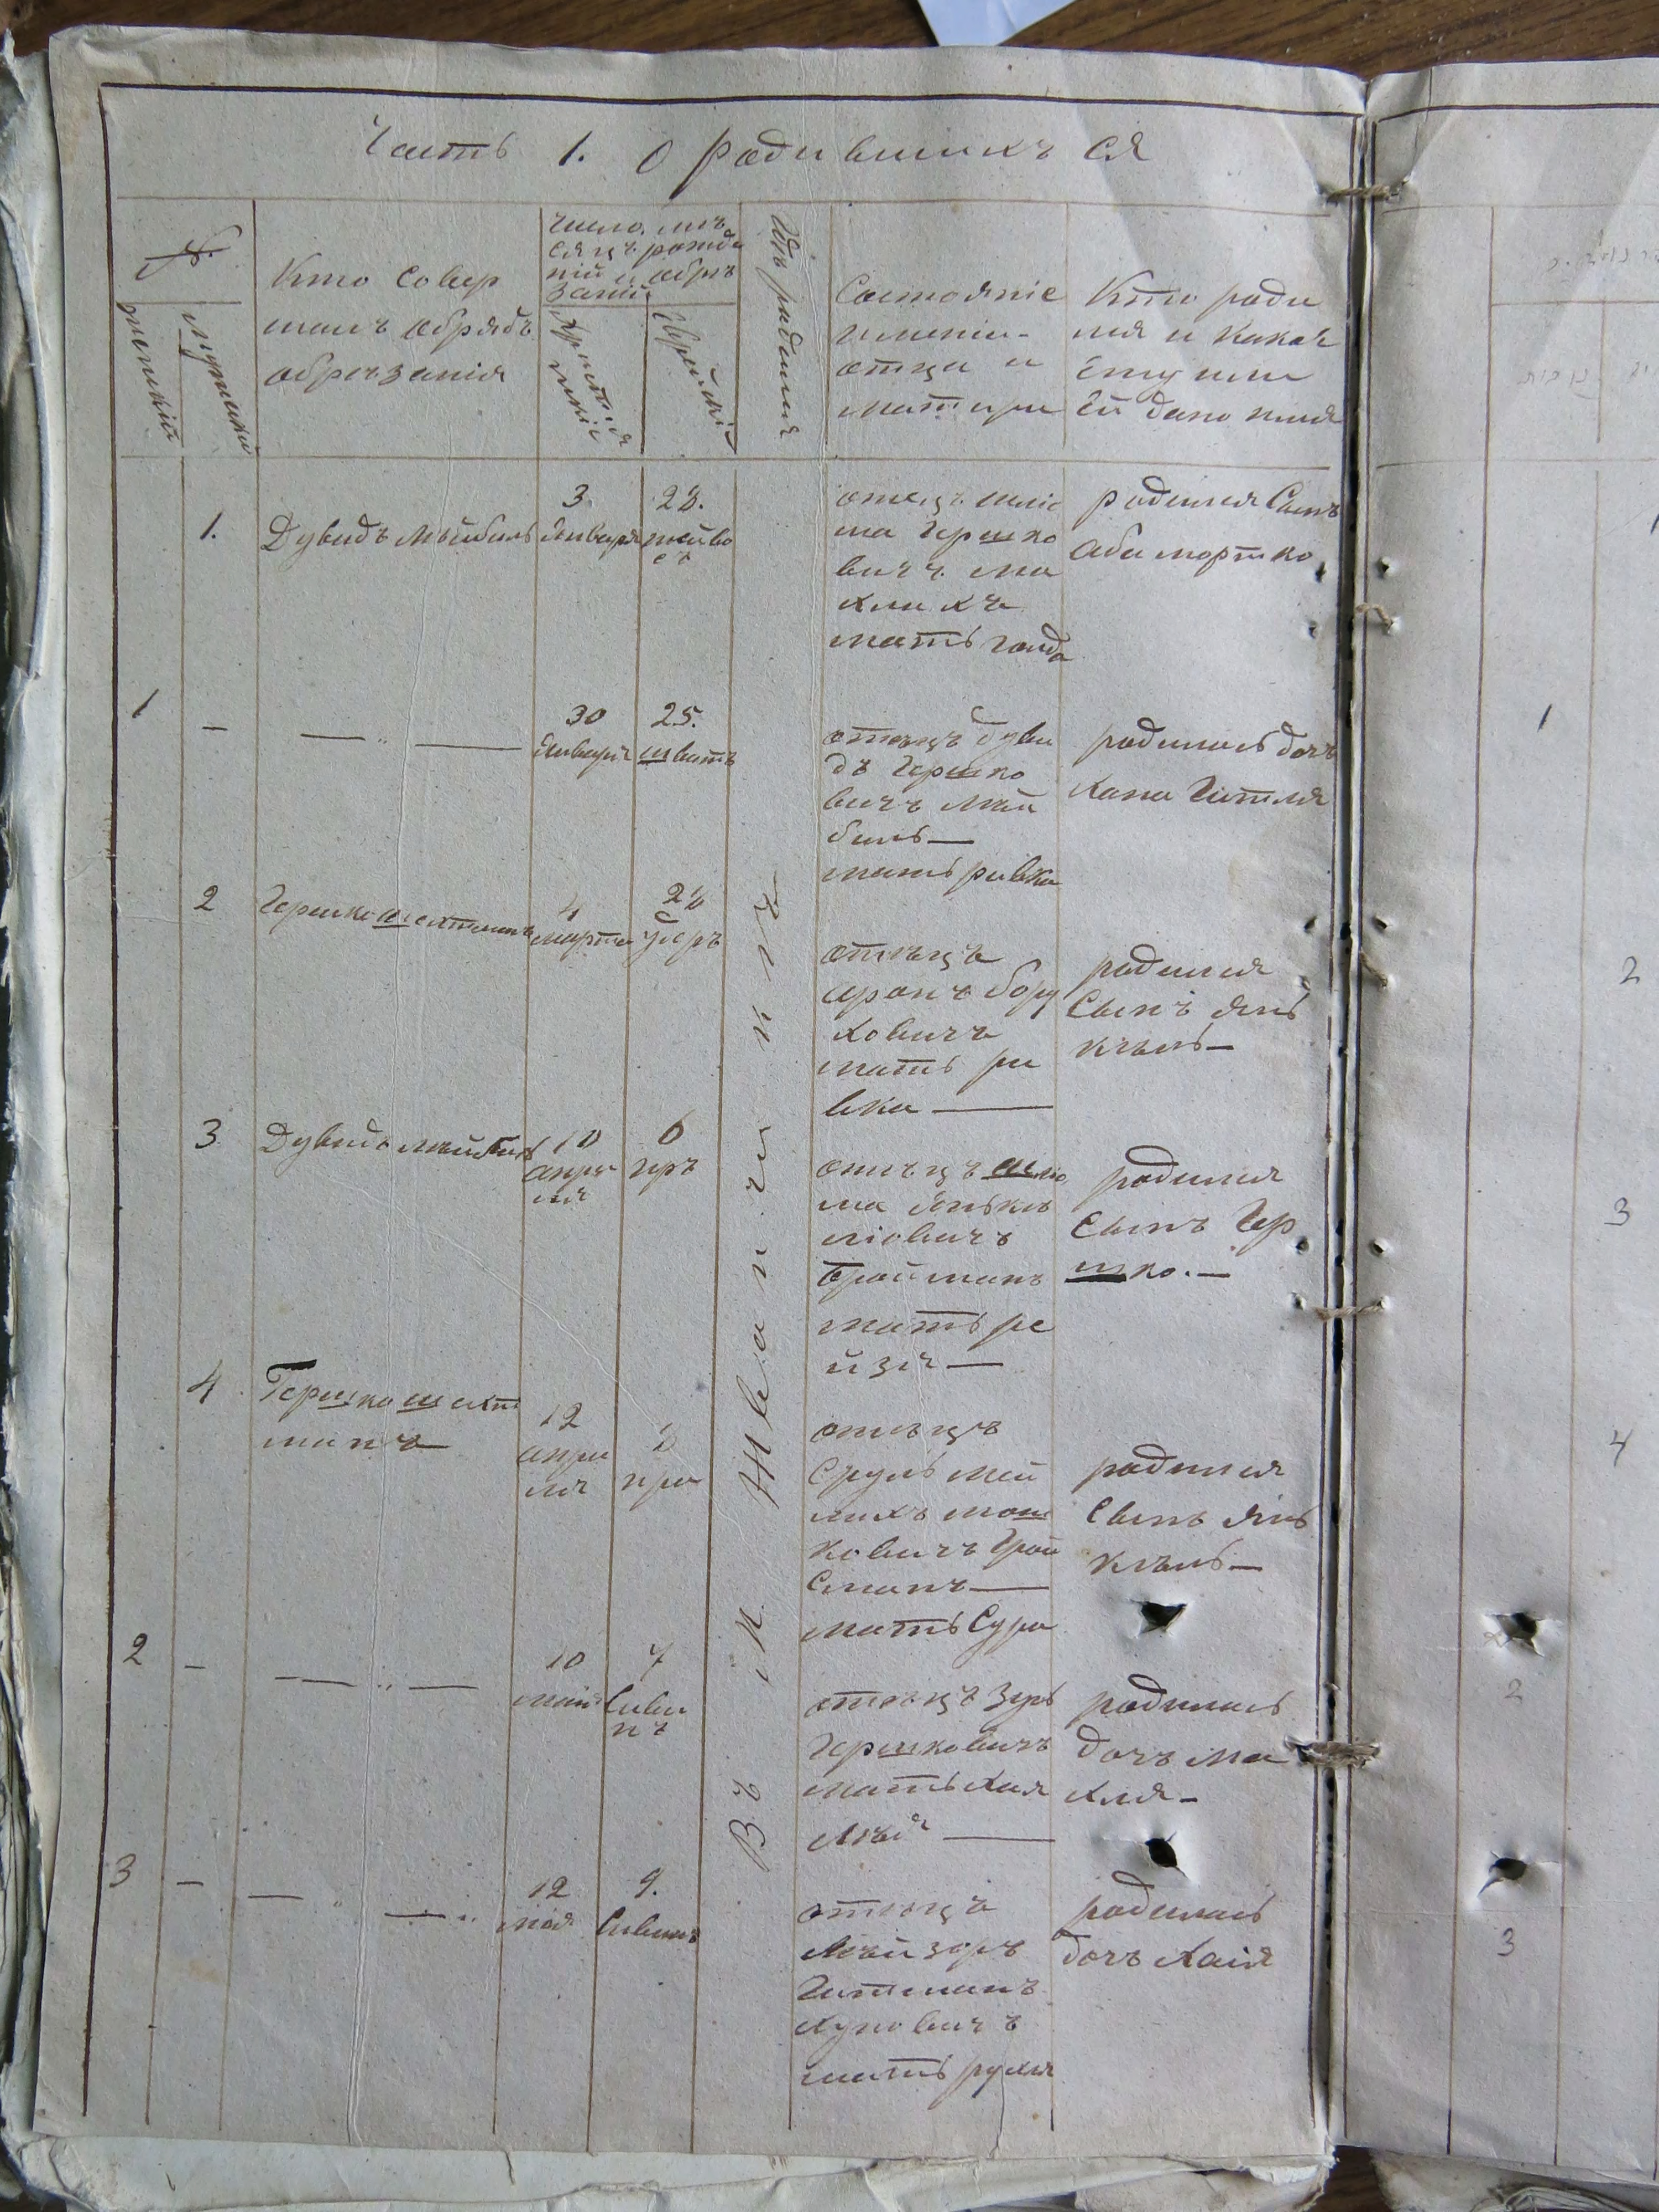 Часть 1. О родившихъ ся
№
женскій
мужескій
Кто совер
шалъ обрядъ
обрезанія
число, мѣ
сяцъ рожде
ній и обрѣ
заній
Христія
нскій
Еврейскій
Гдѣ родился
Состояніе
имении
отца и
матери
Кто роди
лся и какое
ему или
ей дано имя
Въ м Жванчикѣ
1.
Дувидъ Мѣйбель
3
Января
28.
тейве
съ
отецъ шліо
ма Гершко
вичъ ма
хликъ
мать голда
родился Сынъ
Аба мортко
1
—
— „ —
30
Января
25.
шватъ
отецъ Дуви
дъ Гершко
вичъ Мей
бель —
мать ривка
родилась дочъ
хана Гитля
2
Гершко шехтманъ
4
марта
28
Удеръ
отецъ
аронъ бору
ховичъ
мать ри
вка —
родился
Сынъ Янь
кель —
3
Дувидъ мейбель
10
апре
ля
6
иръ
отецъ шлио
ма Янькъ
ліовичъ
Тройманъ
мать ре
йзя —
родился
Сынъ Гер
шко. —
4
Гершко шехт
манъ
12
апре
ля
8
ира
отецъ
Сруль мей
лихъ мош
ковичъ Грой
сманъ —
мать Сура
родился
Сынъ Янь
кель —
2
—
— „ —
10
маія
7
Сива
нъ
отецъ Зусь
Гершковичъ
мать хая
лѣя —
родилась
дочъ ма
хля —
3
—
— „ — „
12
мая
9.
Сиванъ
отецъ
лейзоръ
Гительманъ
хуновичъ
мать рухля
родилась
дочъ хаія
1
2
3
4
2
3